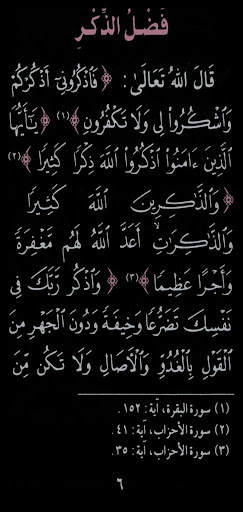 فَضْلُ الذِّكْرِ
قَالَ اللهُ تَعَالَىٰ: ﴿فَاذْكُرُونِيٓ أَذْكُرْكُمْ
وَاشْكُرُوا۟ لِى وَلَا تَكْفُرُونِ﴾(١) ﴿يَٰٓأَيُّهَا
الَّذِينَ ءَامَنُوا۟ اذْكُرُوا۟ اللَّهَ ذِكْرًا كَثِيرًا﴾(٢)
﴿وَالذَّاكِرِينَ اللَّهَ كَثِيرًا
وَالذَّاكِرَاتِ أَعَدَّ اللَّهُ لَهُم مَّغْفِرَةً
وَأَجْرًا عَظِيمًا﴾(٣) ﴿وَاذْكُر رَّبَّكَ فِى
نَفْسِكَ تَضَرُّعًا وَخِيفَةً وَدُونَ الْجَهْرِ مِنَ
الْقَوْلِ بِالْغُدُوِّ وَالْآصَالِ وَلَا تَكُن مِّنَ
(١) سورة البقرة، آية: ١٥٢.
(٢) سورة الأحزاب، آية: ٤١.
(٣) سورة الأحزاب، آية: ٣٥.
٦